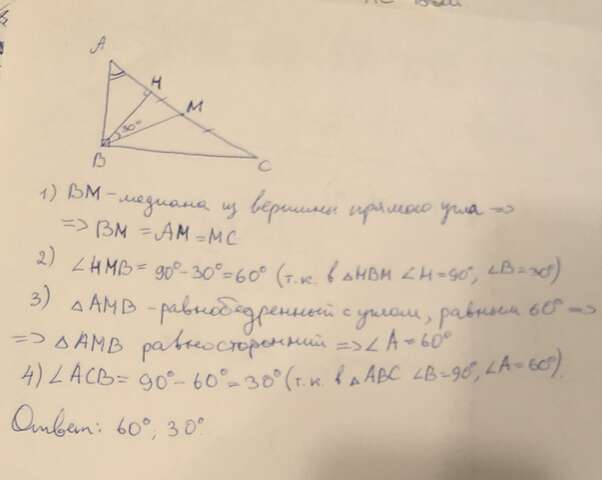 A
H
M
30°
B
C
1) BM - медиана из вершины прямого угла =>
=> BM = AM = MC
2) ∠HMB = 90° - 30° = 60° (т.к. в △HBM ∠H = 90°, ∠B = 30°)
3) △AMB - равнобедренный с углом, равным 60° =>
=> △AMB равносторонний => ∠A = 60°
4) ∠ACB = 90° - 60° = 30° (т.к. в △ABC ∠B = 90°, ∠A = 60°).
Ответ: 60°; 30°.